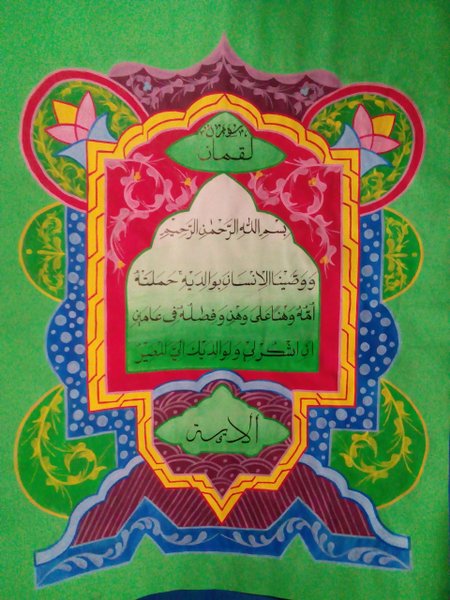 لقمان
بِسْمِ اللهِ الرَّحْمٰنِ الرَّحِيْمِ
وَوَصَّيْنَا الْاِنْسَانَ بِوَالِدَيْهِ حَمَلَتْهُ
اُمُّهُ وَهْنًا عَلٰى وَهْنٍ وَفِصٰلُهُ فِى عَامَيْنِ
اَنِ اشْكُرْلِيْ وَلِوَالِدَيْكَ اِلَيَّ الْمَصِيْرُ
الاية